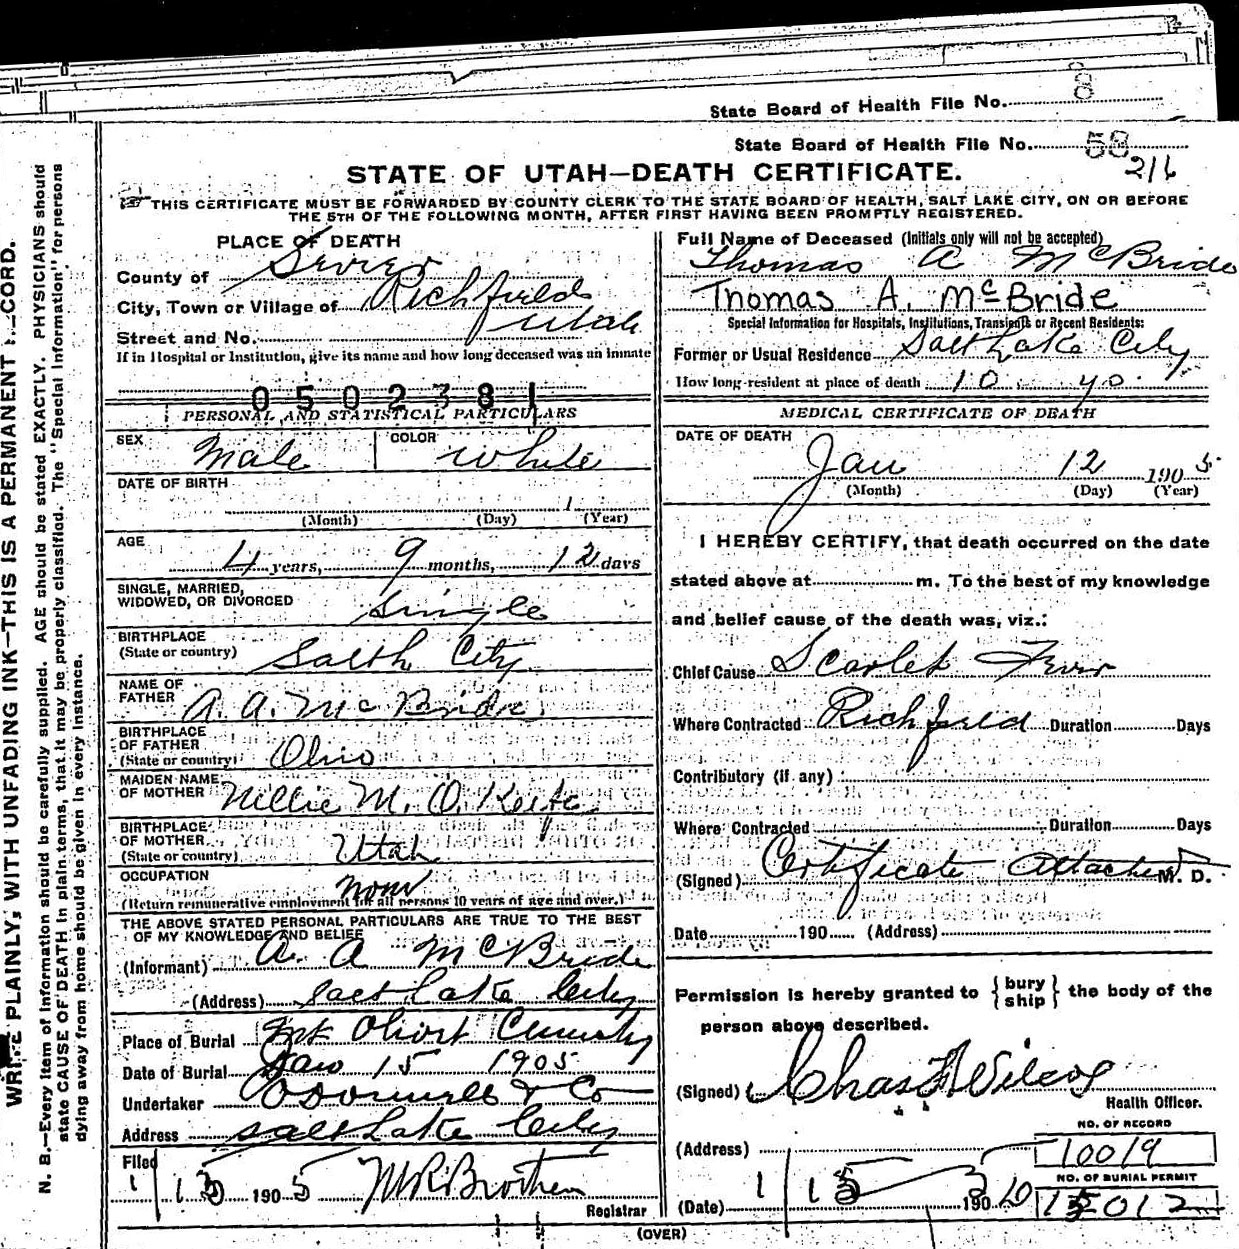 State Board of Health File No.
State Board of Health File No. 58
216
STATE OF UTAH—DEATH CERTIFICATE.
THIS CERTIFICATE MUST BE FORWARDED BY COUNTY CLERK TO THE STATE BOARD OF HEALTH, SALT LAKE CITY, ON OR BEFORE
THE 5TH OF THE FOLLOWING MONTH, AFTER FIRST HAVING BEEN PROMPTLY REGISTERED.
WRITE PLAINLY, WITH UNFADING INK—THIS IS A PERMANENT RECORD.
N. B.—Every item of information should be carefully supplied. AGE should be stated EXACTLY. PHYSICIANS should
state CAUSE OF DEATH in plain terms, that it may be properly classified. The "Special Information" for persons
dying away from home should be given in every instance.
PLACE OF DEATH
County of Sevier
City, Town or Village of Richfield
Utah
Street and No.
If in Hospital or Institution, give its name and how long deceased was an inmate
0502381
PERSONAL AND STATISTICAL PARTICULARS
SEX Male COLOR White
DATE OF BIRTH
1
(Month) (Day) (Year)
AGE
4 years, 9 months, 12 days
SINGLE, MARRIED,
WIDOWED, OR DIVORCED Single
BIRTHPLACE
(State or country) Salt L City
NAME OF
FATHER A. A. McBride
BIRTHPLACE
OF FATHER
(State or country) Ohio
MAIDEN NAME
OF MOTHER Nellie M. O.Keefe
BIRTHPLACE
OF MOTHER
(State or country) Utah
OCCUPATION
none
(Return remunerative employment for all persons 10 years of age and over.)
THE ABOVE STATED PERSONAL PARTICULARS ARE TRUE TO THE BEST
OF MY KNOWLEDGE AND BELIEF
(Informant) A. A McBride
(Address) Salt Lake City
Place of Burial Mt Olivet Cemetery
Date of Burial Jan 15 1905
Undertaker O'Donnell & Co
Address Salt Lake City
Filed
1/13 1905
Registrar
Full Name of Deceased (Initials only will not be accepted)
Thomas A McBride
Thomas A. McBride
Special Information for Hospitals, Institutions, Transients or Recent Residents:
Former or Usual Residence Salt Lake City
How long resident at place of death 10 yo.
MEDICAL CERTIFICATE OF DEATH
DATE OF DEATH
Jan 12 1905
(Month) (Day) (Year)
I HEREBY CERTIFY, that death occurred on the date
stated above at m. To the best of my knowledge
and belief cause of the death was, viz.:
Chief Cause Scarlet Fever
Where Contracted Richfield Duration Days
Contributory (if any)
Where Contracted Duration Days
(Signed) Certificate Attached M. D.
Date 190 (Address)
Permission is hereby granted to {bury ship} the body of the
person above described.
(Signed) Chas F Wilcox
Health Officer.
NO. OF RECORD
(Address) 10019
NO. OF BURIAL PERMIT
(Date) 1/15 190
(OVER)